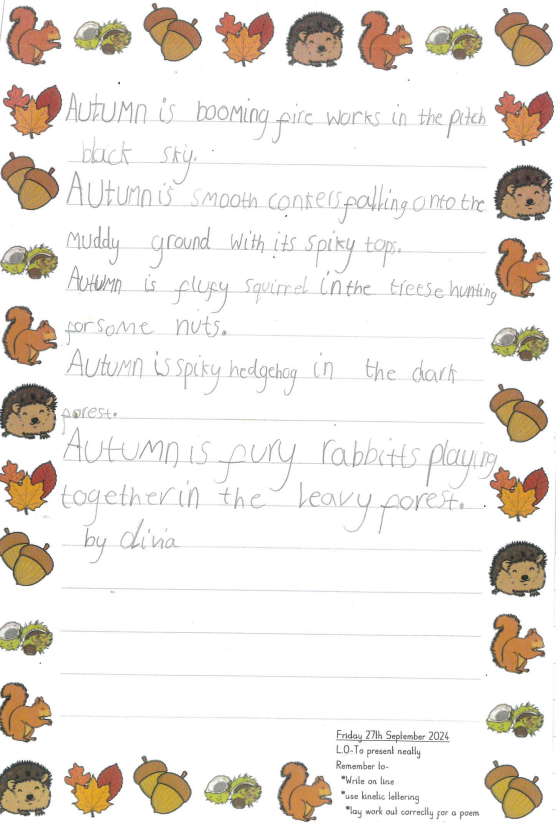 AUTUMN is booming fire works in the pitch
black sky.
AUTUMN is smooth conkers falling onto the
muddy ground with its spiky tops.
AUTUMN is flufy squirrel in the treese hunting
for some nuts.
AUTUMN is spiky hedgehog in the dark
forest.
AUTUMN is fury rabbitts playing
together in the leavy forest.
by Olivia
Friday 27th September 2024
L.O-To present neatly
Remember to-
*Write on line
*use kinetic lettering
*lay work out correctly for a poem